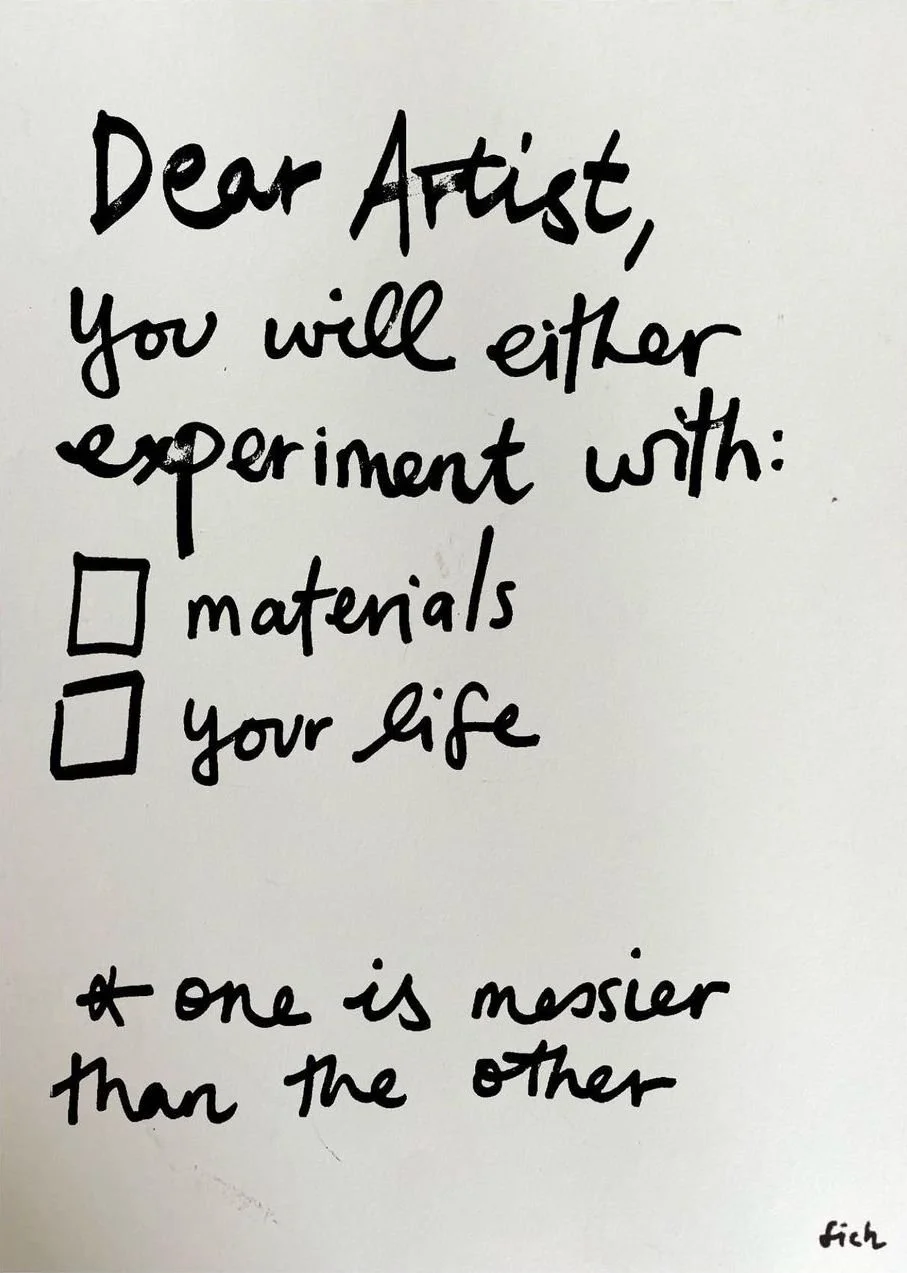 Dear Artist,
you will either
experiment with:
☐ materials
☐ your life
* one is messier
than the other
fich